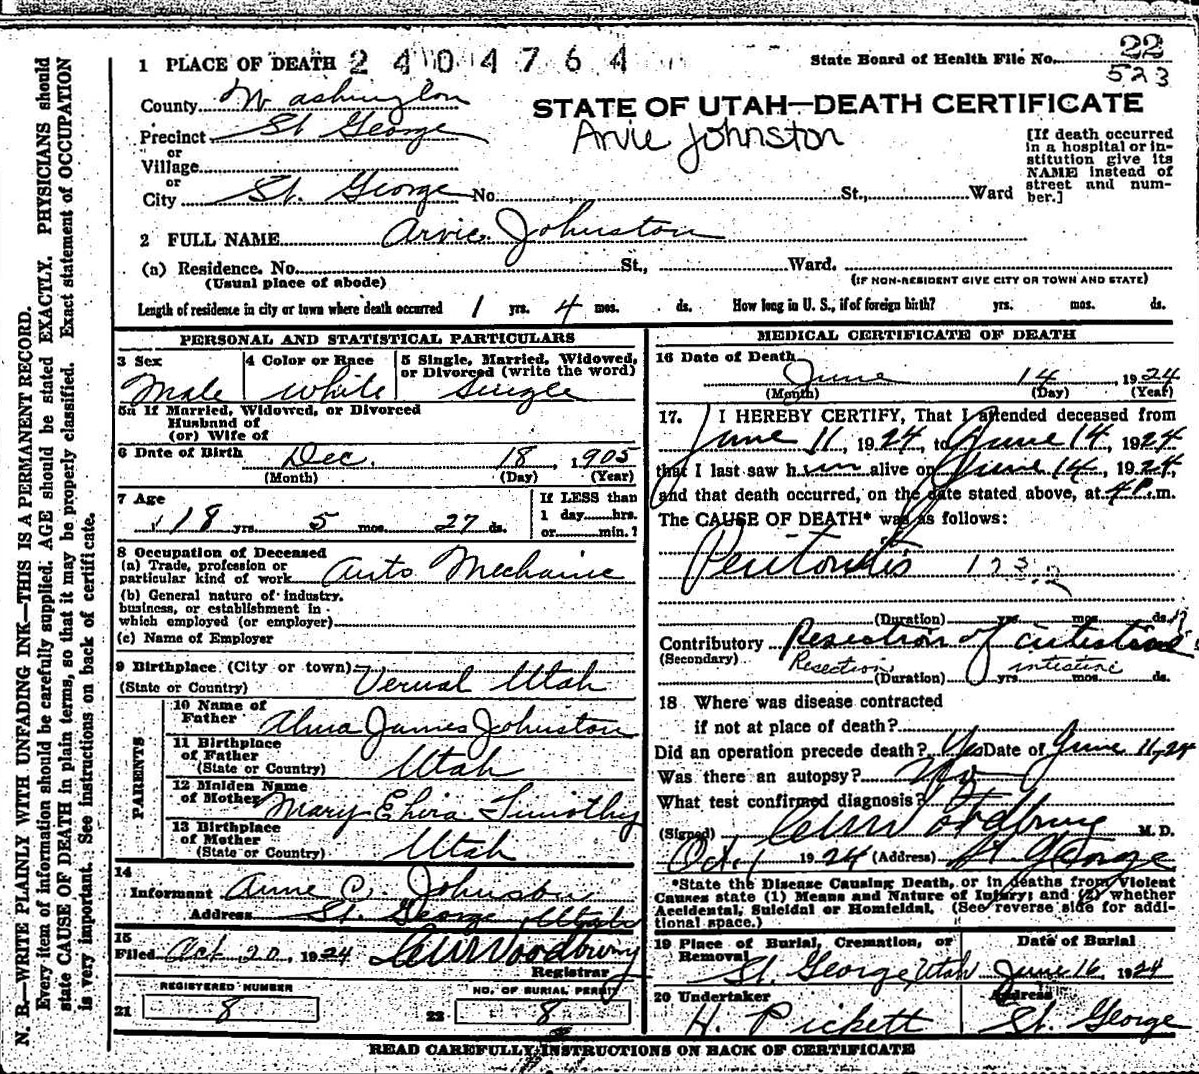 22
State Board of Health File No.
523
1 PLACE OF DEATH 2404764
County Washington
STATE OF UTAH—DEATH CERTIFICATE
Precinct St George
Arvie Johnston
or
Village
or
City St. George No. St., Ward
[If death occurred
in a hospital or in-
stitution give its
NAME instead of
street and num-
ber.]
2 FULL NAME Arvie Johnston
(a) Residence. No. St., Ward.
(Usual place of abode)
(IF NON-RESIDENT GIVE CITY OR TOWN AND STATE)
Length of residence in city or town where death occurred 1 yrs. 4 mos. ds. How long in U. S., if of foreign birth? yrs. mos. ds.
PERSONAL AND STATISTICAL PARTICULARS
3 Sex
Male
4 Color or Race
White
5 Single, Married, Widowed,
or Divorced (write the word)
Single
5a If Married, Widowed, or Divorced
Husband of
(or) Wife of
6 Date of Birth Dec. 18, 1905
(Month) (Day) (Year)
7 Age
18 yrs. 5 mos. 27 ds.
If LESS than
1 day......hrs.
or......min.?
8 Occupation of Deceased
(a) Trade, profession or
particular kind of work Auto Mechanic
(b) General nature of industry,
business, or establishment in
which employed (or employer)
(c) Name of Employer
9 Birthplace (City or town) Vernal Utah
(State or Country)
PARENTS
10 Name of
Father Alma James Johnston
11 Birthplace
of Father
(State or Country) Utah
12 Maiden Name
of Mother Mary Timothy
13 Birthplace
of Mother
(State or Country) Utah
14
Informant Anne C. Johnson
Address St. George Utah
15
Filed Oct 20, 1924 Woodbury
Registrar
REGISTERED NUMBER
21 8
NO. OF BURIAL PERMIT
22 8
MEDICAL CERTIFICATE OF DEATH
16 Date of Death
June 14, 1924
(Month) (Day) (Year)
17. I HEREBY CERTIFY, That I attended deceased from
June 11, 1924, to June 14, 1924
that I last saw him alive on June 14, 1924,
and that death occurred, on the date stated above, at 4 P.m.
The CAUSE OF DEATH* was as follows:
Peritonitis
(Duration) yrs. mos. ds.
Contributory Resection of intestine
(Secondary) Resection intestine
(Duration) yrs. mos. ds.
18 Where was disease contracted
if not at place of death?
Did an operation precede death? Yes Date of June 11, 24
Was there an autopsy? No
What test confirmed diagnosis?
(Signed) Woodbury M. D.
Oct 1 1924 (Address) St. George
*State the Disease Causing Death, or in deaths from Violent
Causes state (1) Means and Nature of Injury; and (2) whether
Accidental, Suicidal or Homicidal. (See reverse side for addi-
tional space.)
19 Place of Burial, Cremation, or
Removal
St. George, Utah
Date of Burial
June 16, 1924
20 Undertaker
H. Pickett
Address
St. George
READ CAREFULLY INSTRUCTIONS ON BACK OF CERTIFICATE
N. B.—WRITE PLAINLY WITH UNFADING INK—THIS IS A PERMANENT RECORD.
Every item of information should be carefully supplied. AGE should be stated EXACTLY. PHYSICIANS should
state CAUSE OF DEATH in plain terms, so that it may be properly classified. Exact statement of OCCUPATION
is very important. See instructions on back of certificate.